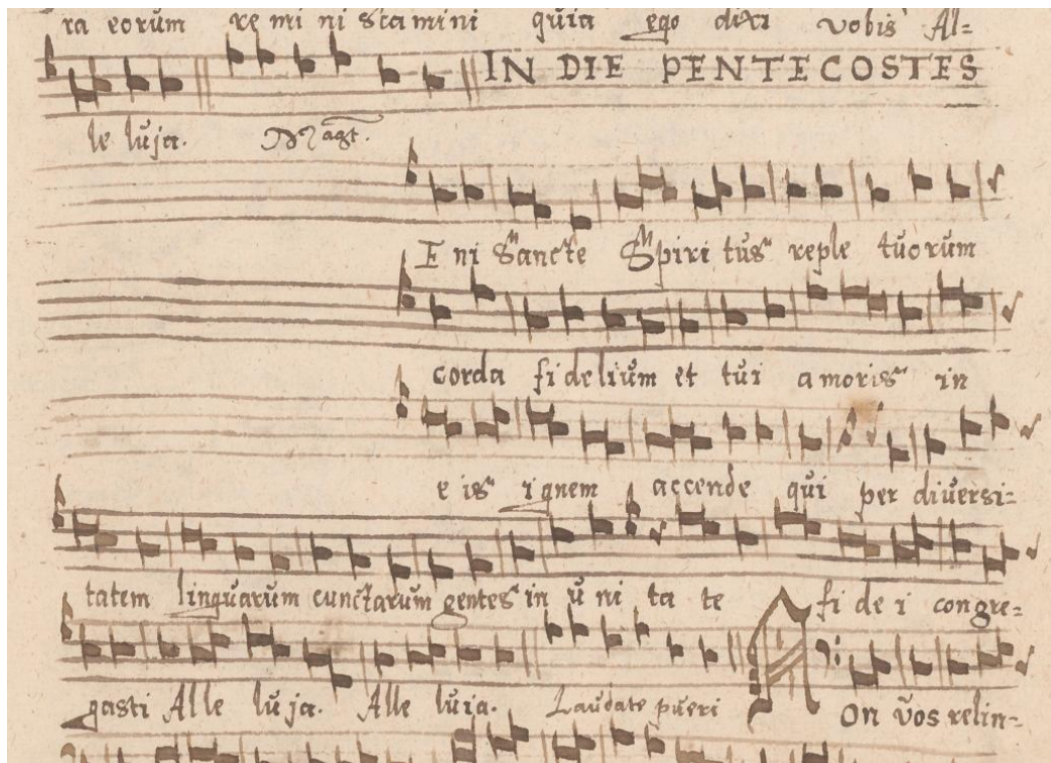 ra eorum re mi ni sca mini quia ego dixi vobis Al=
IN DIE PENTECOSTES
le luja. Magt.
E ni Sancte Spiri tus reple tuorum
corda fi delium et tui amoris in
e is ignem accende qui per diversi=
tatem linguarum cunctarum gentes in u ni ta te fi de i congre=
gasti Alle luja. Alle luia. Laudate pueri Non vos relin=